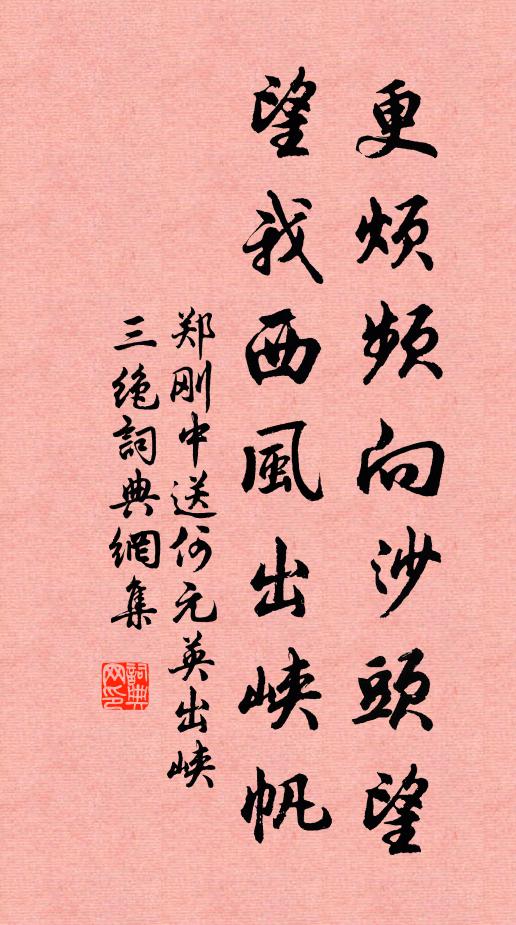 更烦频向沙頭望
望我西風出峡帆
郑刚中送何元英出峡
三绝詞典網集
詞典网印